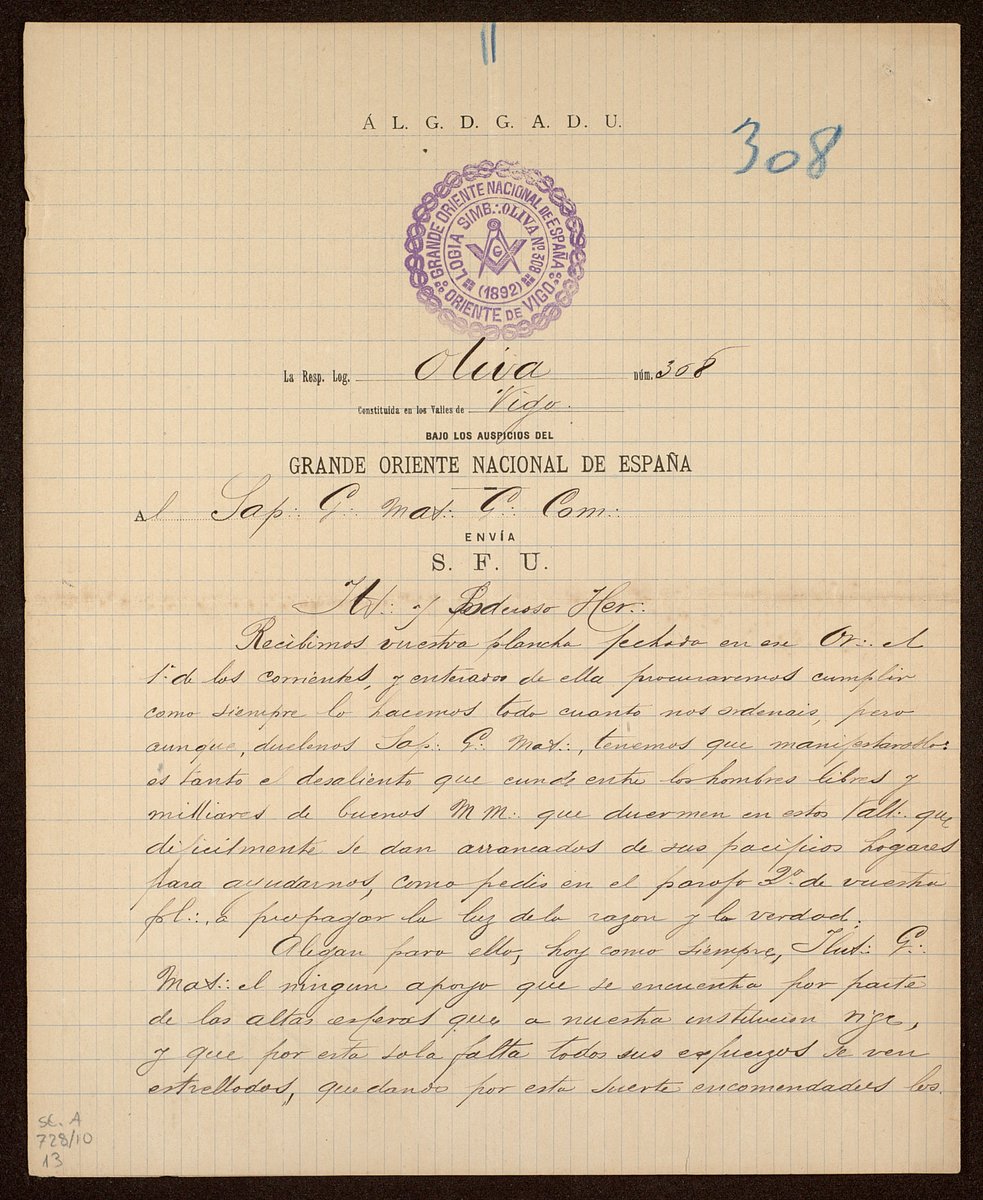 11
Á L. G. D. G. A. D. U.
308
GRANDE ORIENTE NACIONAL DE ESPAÑA
LOGIA SIMB∴ OLIVA Nº 308
G
(1892)
ORIENTE DE VIGO
La Resp. Log. Oliva núm. 308
Constituida en los Valles de Vigo.
BAJO LOS AUSPICIOS DEL
GRANDE ORIENTE NACIONAL DE ESPAÑA
Al Sap∴ G∴ Mas∴ G∴ Com∴
ENVÍA
S. F. U.
Ilt∴ y Poderoso Her∴
Recibimos vuestra plancha fechada en ese Or∴ el
1º de los corrientes, y enterados de ella procuraremos cumplir
como siempre lo hacemos todo cuanto nos ordenais, pero
aunque, duelenos Sap∴ G∴ Mas∴, tenemos que manifestaroslo:
es tanto el desaliento que cunde entre los hombres libres y
milliares de buenos M M∴ que duermen en estos Vall∴ que
dificilmente se dan arrancados de sus pacificos hogares
para ayudarnos, como pedis en el parafo 2º de vuestra
pl∴, a propagar la luz de la razon y la verdad.
Alegan para ello, hoy como siempre, Ilus∴ G∴
Mas∴ el ningun apoyo que se encuentra por parte
de las altas esferas que a nuestra institucion rige,
y que por esta sola falta todos sus esfuerzos se ven
estrellados, quedando por esta suerte encomendados los
SC. A
728/10
13